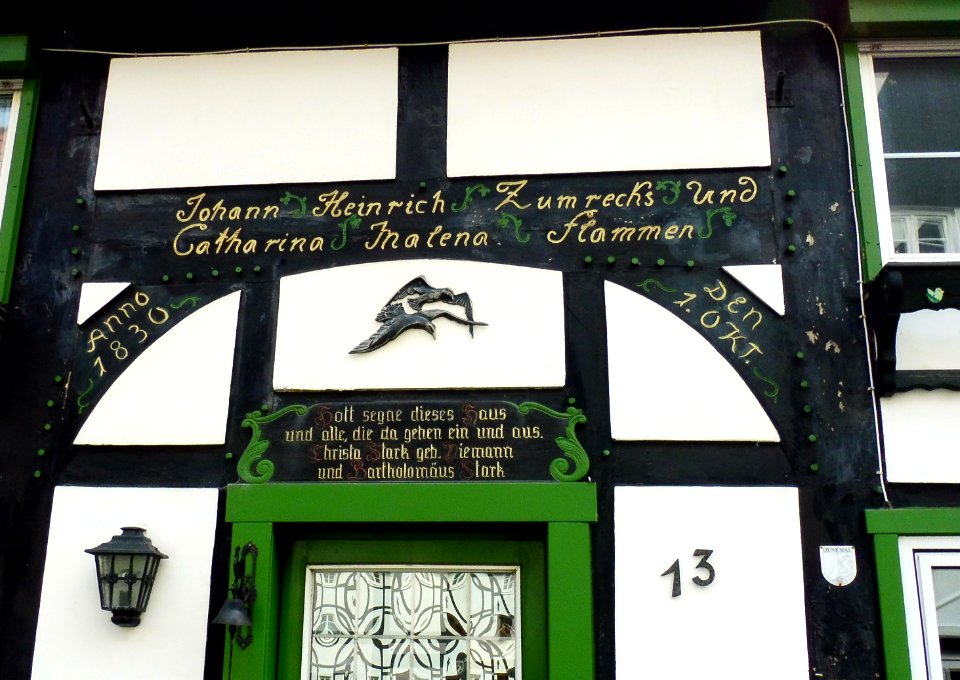 Johann Heinrich Zumrecks Und
Catharina Malena Flammen
Anno
1830
Den
1. Okt.
Gott segne dieses Haus
und alle, die da gehen ein und aus.
Christa Stark geb. Niemann
und Bartholomäus Stark
13
DENKMAL